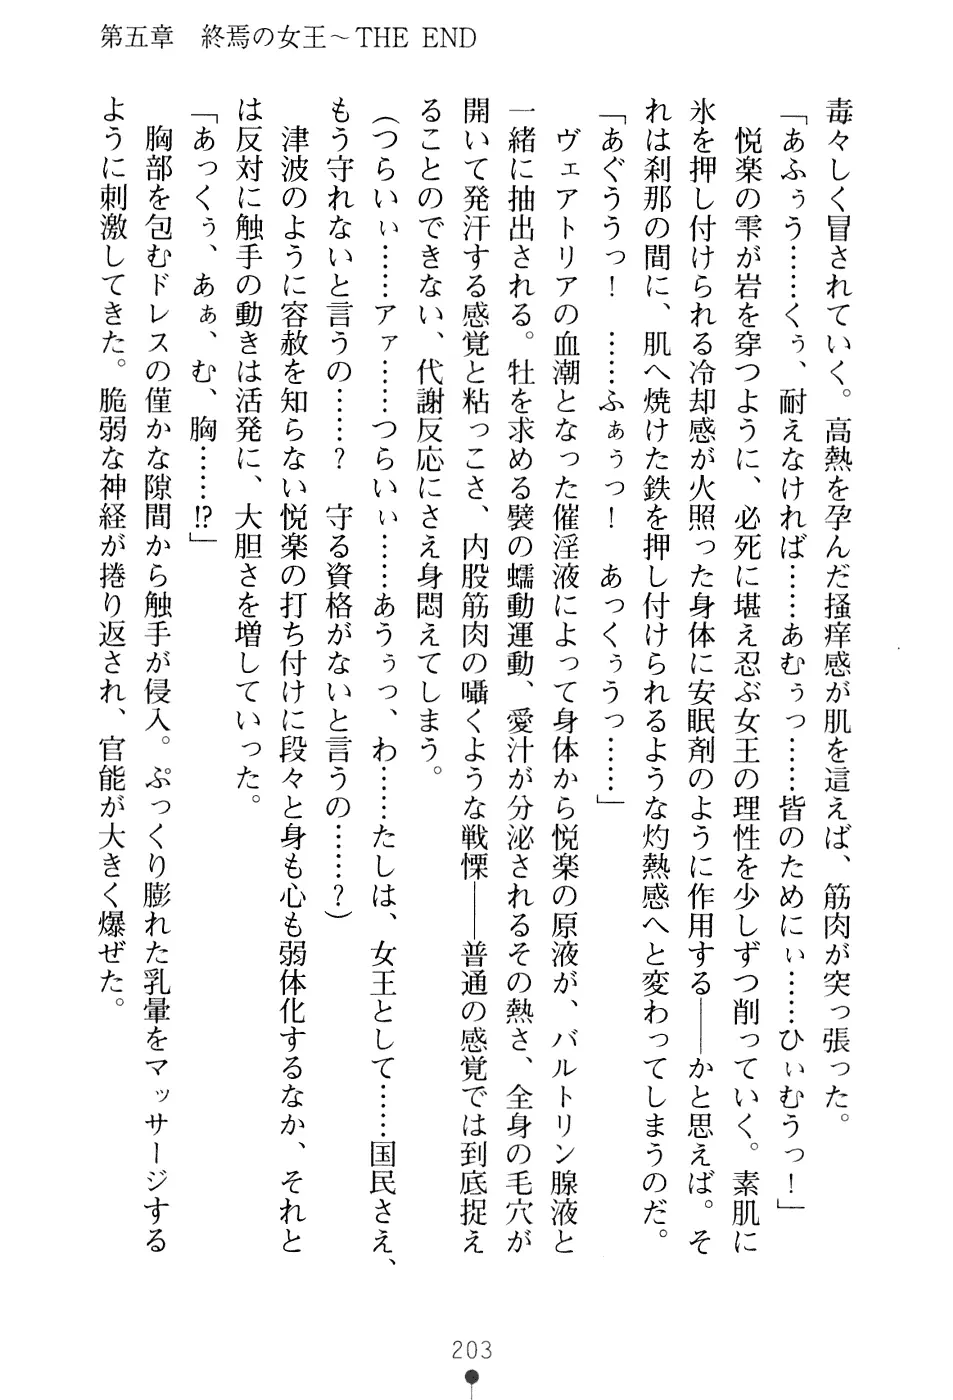 第五章　終焉の女王～THE END
毒々しく冒されていく。高熱を孕んだ掻痒感が肌を這えば、筋肉が突っ張った。
「あふぅう……くぅ、耐えなければ……あむぅっ……皆のためにぃ……ひぃむうっ！」
　悦楽の雫が岩を穿つように、必死に堪え忍ぶ女王の理性を少しずつ削っていく。素肌に
氷を押し付けられる冷却感が火照った身体に安眠剤のように作用する――かと思えば。そ
れは刹那の間に、肌へ焼けた鉄を押し付けられるような灼熱感へと変わってしまうのだ。
「あぐううっ！　……ふぁぅっ！　あっくぅうっ……」
　ヴェアトリアの血潮となった催淫液によって身体から悦楽の原液が、バルトリン腺液と
一緒に抽出される。牡を求める襞の蠕動運動、愛汁が分泌されるその熱さ、全身の毛穴が
開いて発汗する感覚と粘っこさ、内股筋肉の囁くような戦慄――普通の感覚では到底捉え
ることのできない、代謝反応にさえ身悶えてしまう。
（つらいぃ……アァ……つらいぃ……あうぅっ、わ……たしは、女王として……国民さえ、
もう守れないと言うの……？　守る資格がないと言うの……？）
　津波のように容赦を知らない悦楽の打ち付けに段々と身も心も弱体化するなか、それと
は反対に触手の動きは活発に、大胆さを増していった。
「あっくぅ、あぁ、む、胸……⁉」
　胸部を包むドレスの僅かな隙間から触手が侵入。ぷっくり膨れた乳暈をマッサージする
ように刺激してきた。脆弱な神経が捲り返され、官能が大きく爆ぜた。
203